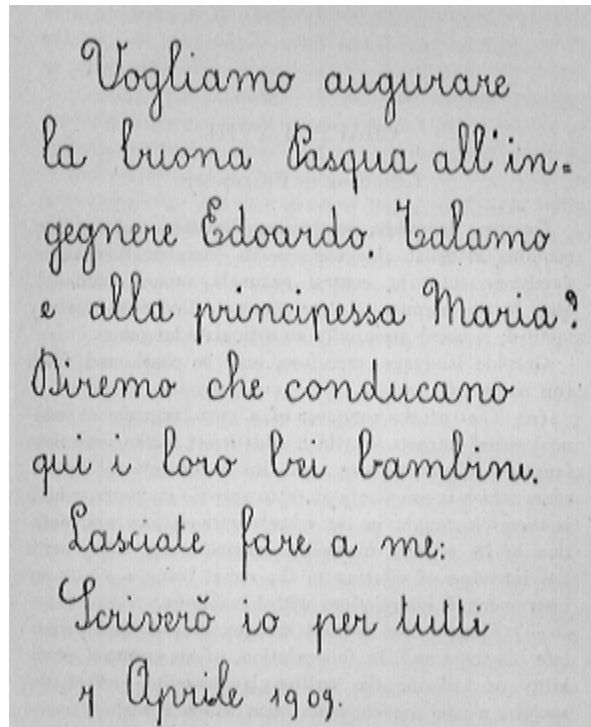 Vogliamo augurare
la buona Pasqua all'in=
gegnere Edoardo Talamo
e alla principessa Maria?
Diremo che conducano
qui i loro bei bambini.
Lasciate fare a me:
Scriverò io per tutti
7 Aprile 1909.